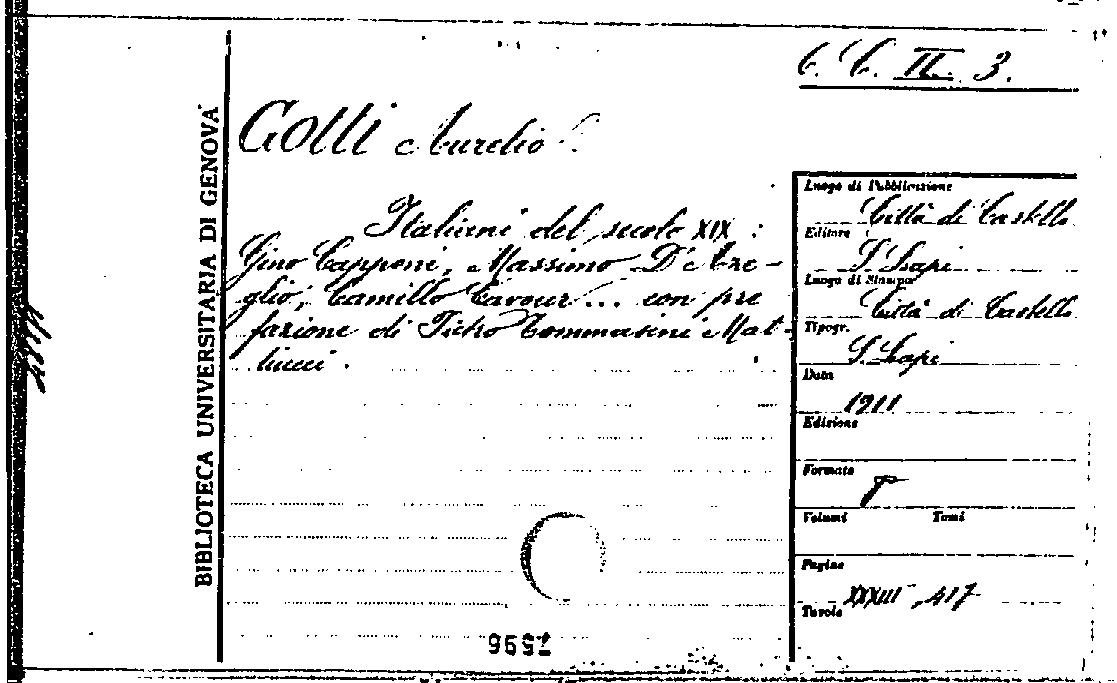 C. C. II. 3.
BIBLIOTECA UNIVERSITARIA DI GENOVA
Gotti Aurelio.
Italiani del secolo XIX :
Gino Capponi, Massimo D'Aze-
glio, Camillo Cavour... con pre
fazione di Pietro Tommasini Mat-
tiucci.
Luogo di Pubblicazione
Città di Castello
Editore
S. Lapi
Luogo di Stampa
Città di Castello
Tipogr.
S. Lapi
Data
1911
Edizione
Formato
8°
Volumi Tomi
Pagine
XXXIII, 417
Tavole